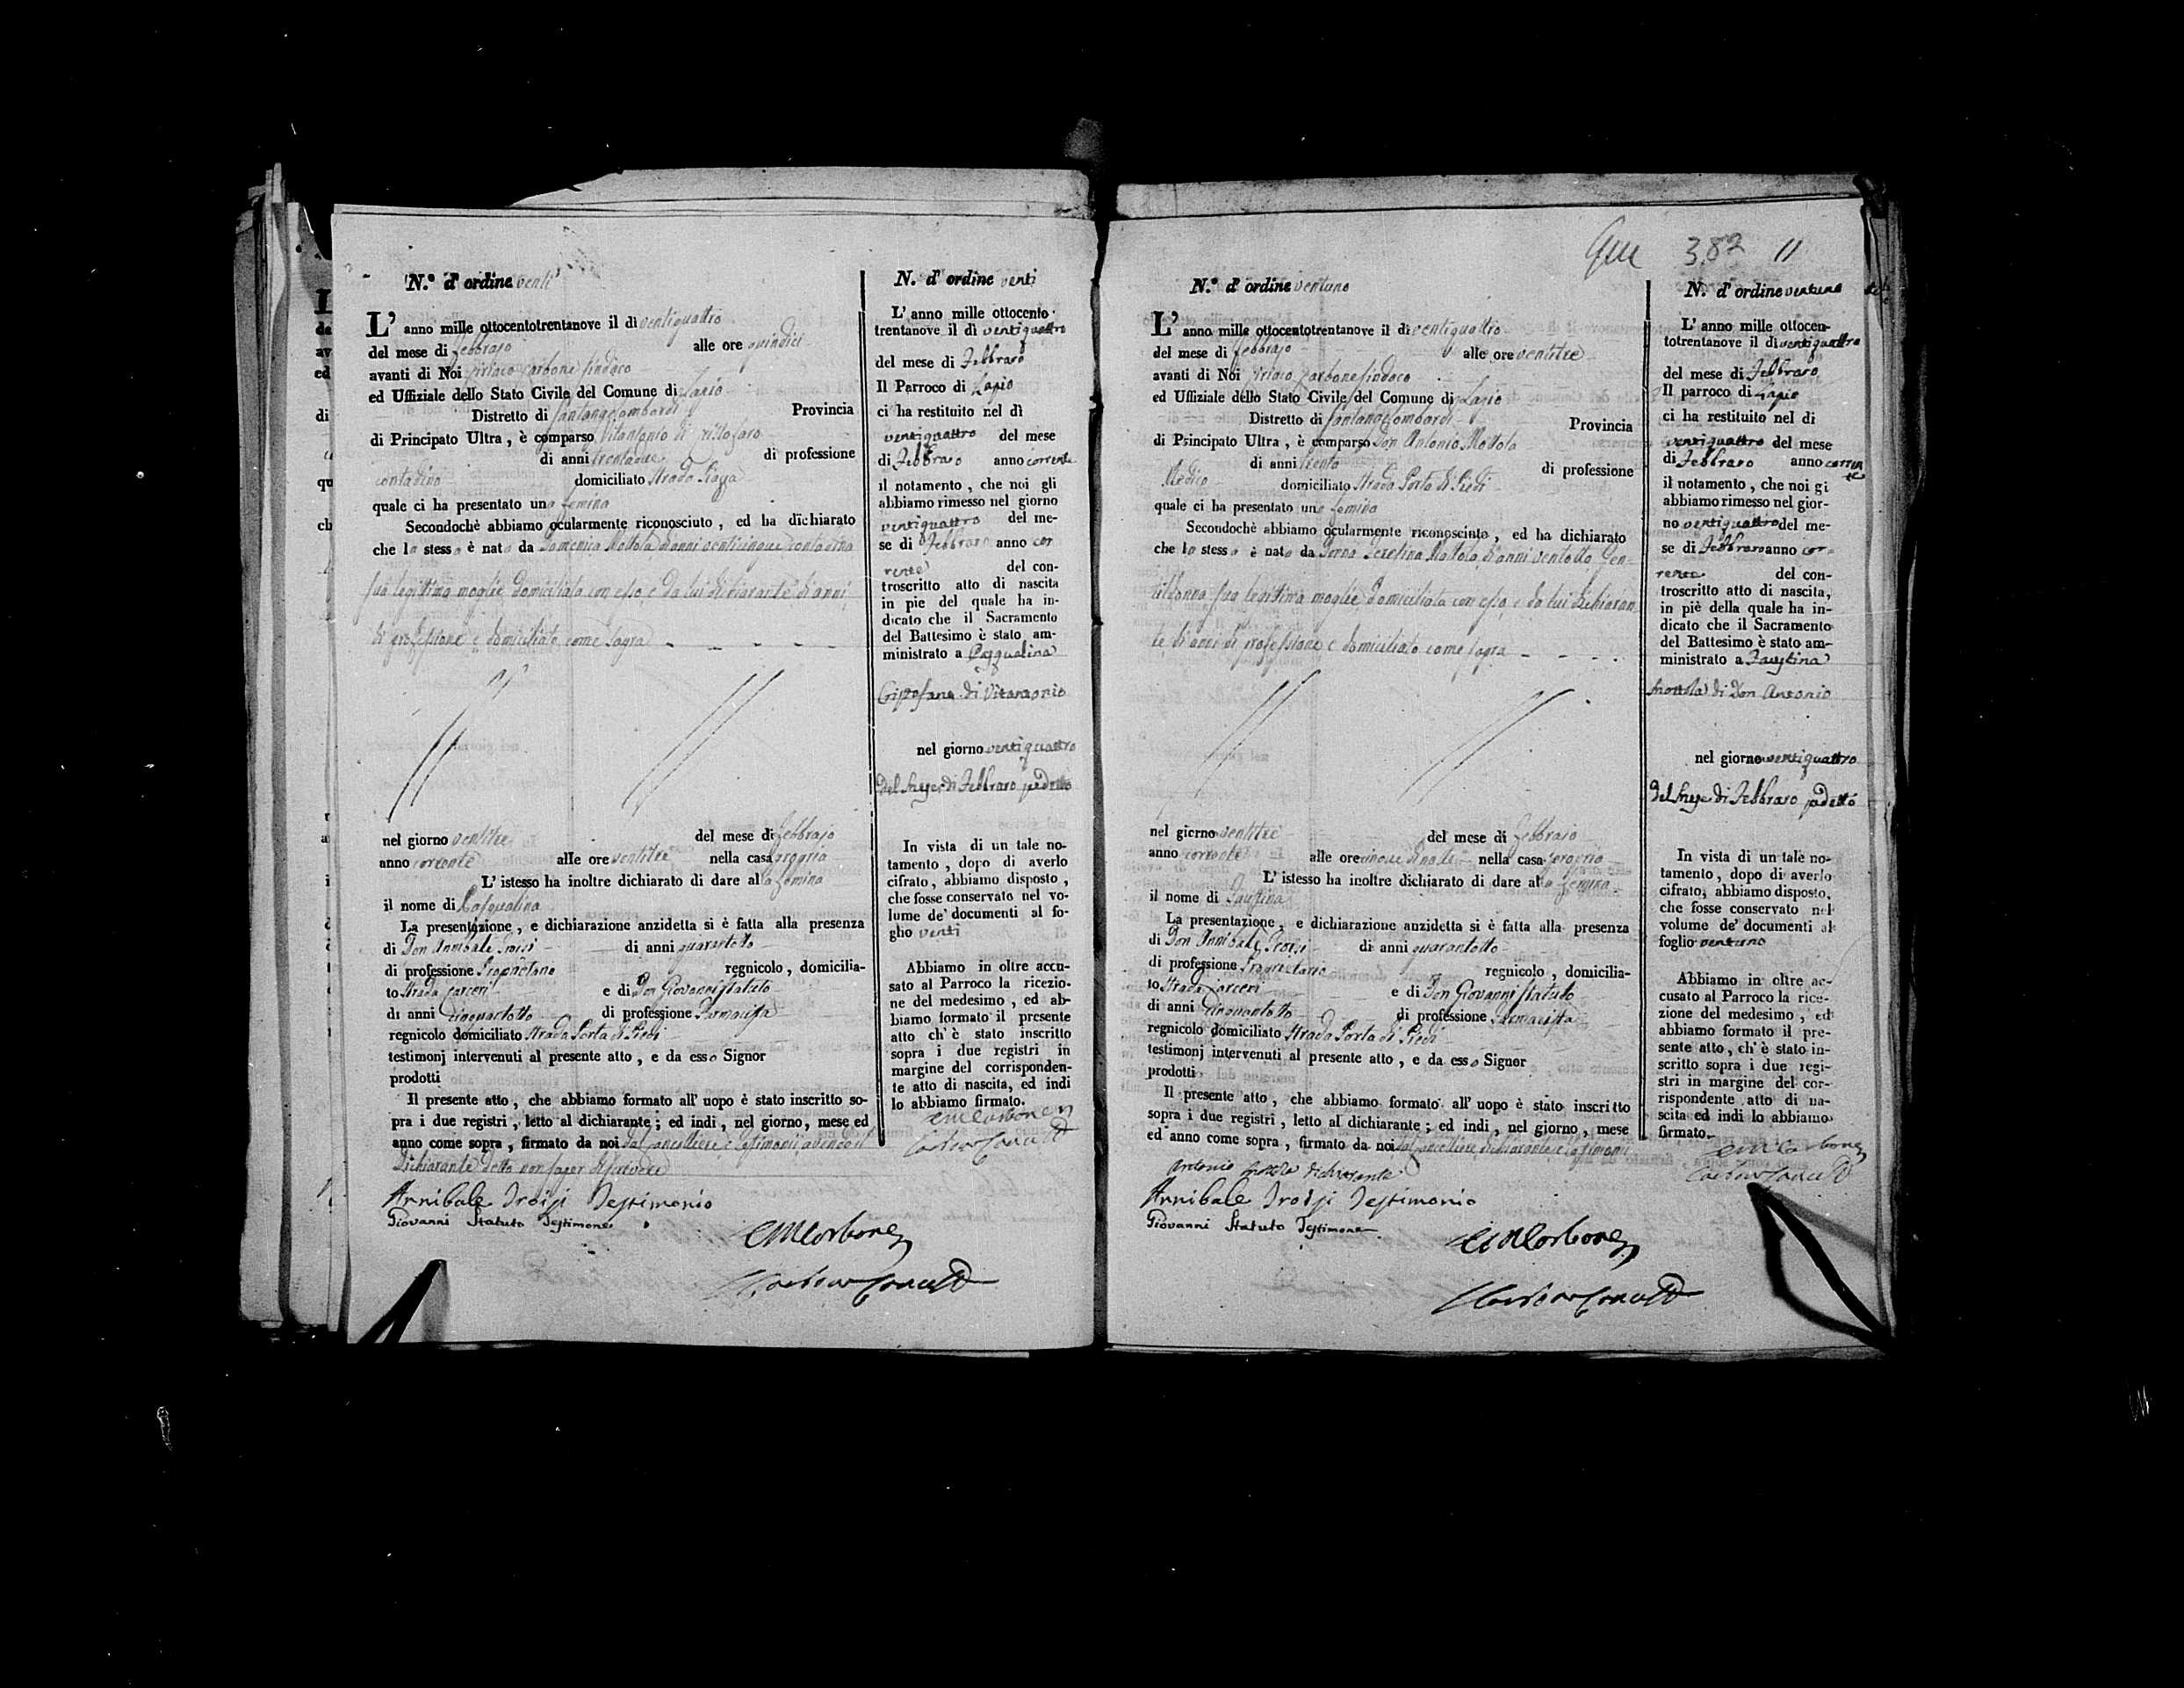 N.° d'ordine venti
L' anno mille ottocentotrentanove il dì ventiquattro
del mese di Febbrajo alle ore quindici
avanti di Noi Ciriaco Carbone Sindaco
ed Uffiziale dello Stato Civile del Comune di Lapio
Distretto di Santangelombardi Provincia
di Principato Ultra, è comparso Vitantonio di
di anni trentadue di professione
contadino domiciliato Strada Piazza
quale ci ha presentato una femina
Secondochè abbiamo ocularmente riconosciuto, ed ha dichiarato
che la stessa è nata da Domenica Mottola di anni venticinque contadina
sua legittima moglie domiciliata con esso, e da lui dichiarante di anni,
di professione e domiciliato come sopra
nel giorno ventitre del mese di Febbrajo
anno corrente alle ore ventitre nella casa propria
L' istesso ha inoltre dichiarato di dare alla femina
il nome di Pasqualina
La presentazione, e dichiarazione anzidetta si è fatta alla presenza
di Don Annibale Troisi di anni quarantotto
di professione Proprietario regnicolo, domicilia-
to Strada Carceri e di Don Giovanni Statuto
di anni cinquantotto di professione Farmacista
regnicolo domiciliato Strada Porta di Piedi
testimonj intervenuti al presente atto, e da esso Signor
prodotti
Il presente atto, che abbiamo formato all' uopo è stato inscritto so-
pra i due registri, letto al dichiarante; ed indi, nel giorno, mese ed
anno come sopra, firmato da noi dal Cancelliere, e testimonii, avendo il
dichiarante detto non saper scrivere
Annibale Troisi Testimonio
Giovanni Statuto Testimone
Carbone
N. d' ordine venti
L' anno mille ottocento-
trentanove il dì ventiquattro
del mese di Febbraro
Il Parroco di Lapio
ci ha restituito nel dì
ventiquattro del mese
di Febbraro anno corrente
il notamento, che noi gli
abbiamo rimesso nel giorno
ventiquattro del me-
se di Febbraro anno cor
rente del con-
troscritto atto di nascita
in pie del quale ha in-
dicato che il Sacramento
del Battesimo è stato am-
ministrato a Pasqualina
di Vitantonio
nel giorno ventiquattro
del mese di Febbraro
In vista di un tale no-
tamento, dopo di averlo
cifrato, abbiamo disposto,
che fosse conservato nel vo-
lume de' documenti al fo-
glio venti
Abbiamo in oltre accu-
sato al Parroco la ricezio-
ne del medesimo, ed ab-
biamo formato il presente
atto ch' è stato inscritto
sopra i due registri in
margine del corrisponden-
te atto di nascita, ed indi
lo abbiamo firmato.
Carbone
382 11
N.° d' ordine ventuno
L' anno mille ottocentotrentanove il dì ventiquattro
del mese di Febbrajo alle ore ventitre
avanti di Noi Ciriaco Carbone Sindaco
ed Uffiziale dello Stato Civile del Comune di Lapio
Distretto di Santangelombardi Provincia
di Principato Ultra, è comparso Don Antonio Mottola
di anni trenta di professione
Medico domiciliato Strada Porta di Piedi
quale ci ha presentato una femina
Secondochè abbiamo ocularmente riconosciuto, ed ha dichiarato
che la stessa è nata da Donna Mottola, di anni ventotto Gen-
tildonna sua legittima moglie domiciliata con esso, e da lui dichiaran
te di anni di professione, e domiciliato come sopra
nel giorno ventitre del mese di Febbrajo
anno corrente alle ore cinque di notte nella casa propria
L' istesso ha inoltre dichiarato di dare alla femina
il nome di Faustina
La presentazione, e dichiarazione anzidetta si è fatta alla presenza
di Don Annibale Troisi di anni quarantotto
di professione Proprietario regnicolo, domicilia-
to Strada Carceri e di Don Giovanni Statuto
di anni cinquantotto di professione Farmacista
regnicolo domiciliato Strada Porta di Piedi
testimonj intervenuti al presente atto, e da esso Signor
prodotti
Il presente atto, che abbiamo formato all' uopo è stato inscritto
sopra i due registri, letto al dichiarante; ed indi, nel giorno, mese
ed anno come sopra, firmato da noi dal Cancelliere, dichiarante e testimoni
Antonio Mottola dichiarante
Annibale Troisi Testimonio
Giovanni Statuto Testimone
Carbone
N. d' ordine ventuno
L' anno mille ottocen-
totrentanove il dì ventiquattro
del mese di Febbraro
Il parroco di Lapio
ci ha restituito nel di
ventiquattro del mese
di Febbraro anno corren
te
il notamento, che noi gi
abbiamo rimesso nel gior-
no ventiquattro del me-
se di Febbraro anno cor-
rente del con-
troscritto atto di nascita,
in piè della quale ha in-
dicato che il Sacramento
del Battesimo è stato am-
ministrato a Faustina
Mottola di Don Antonio
nel giorno ventiquattro
del mese di Febbraro
In vista di un tale no-
tamento, dopo di averlo
cifrato, abbiamo disposto,
che fosse conservato nel
volume de' documenti al
foglio ventuno
Abbiamo in oltre ac-
cusato al Parroco la rice-
zione del medesimo, ed
abbiamo formato il pre-
sente atto, ch' è stato in-
scritto sopra i due regi-
stri in margine del cor-
rispondente atto di na-
scita ed indi lo abbiamo
firmato.
Carbone